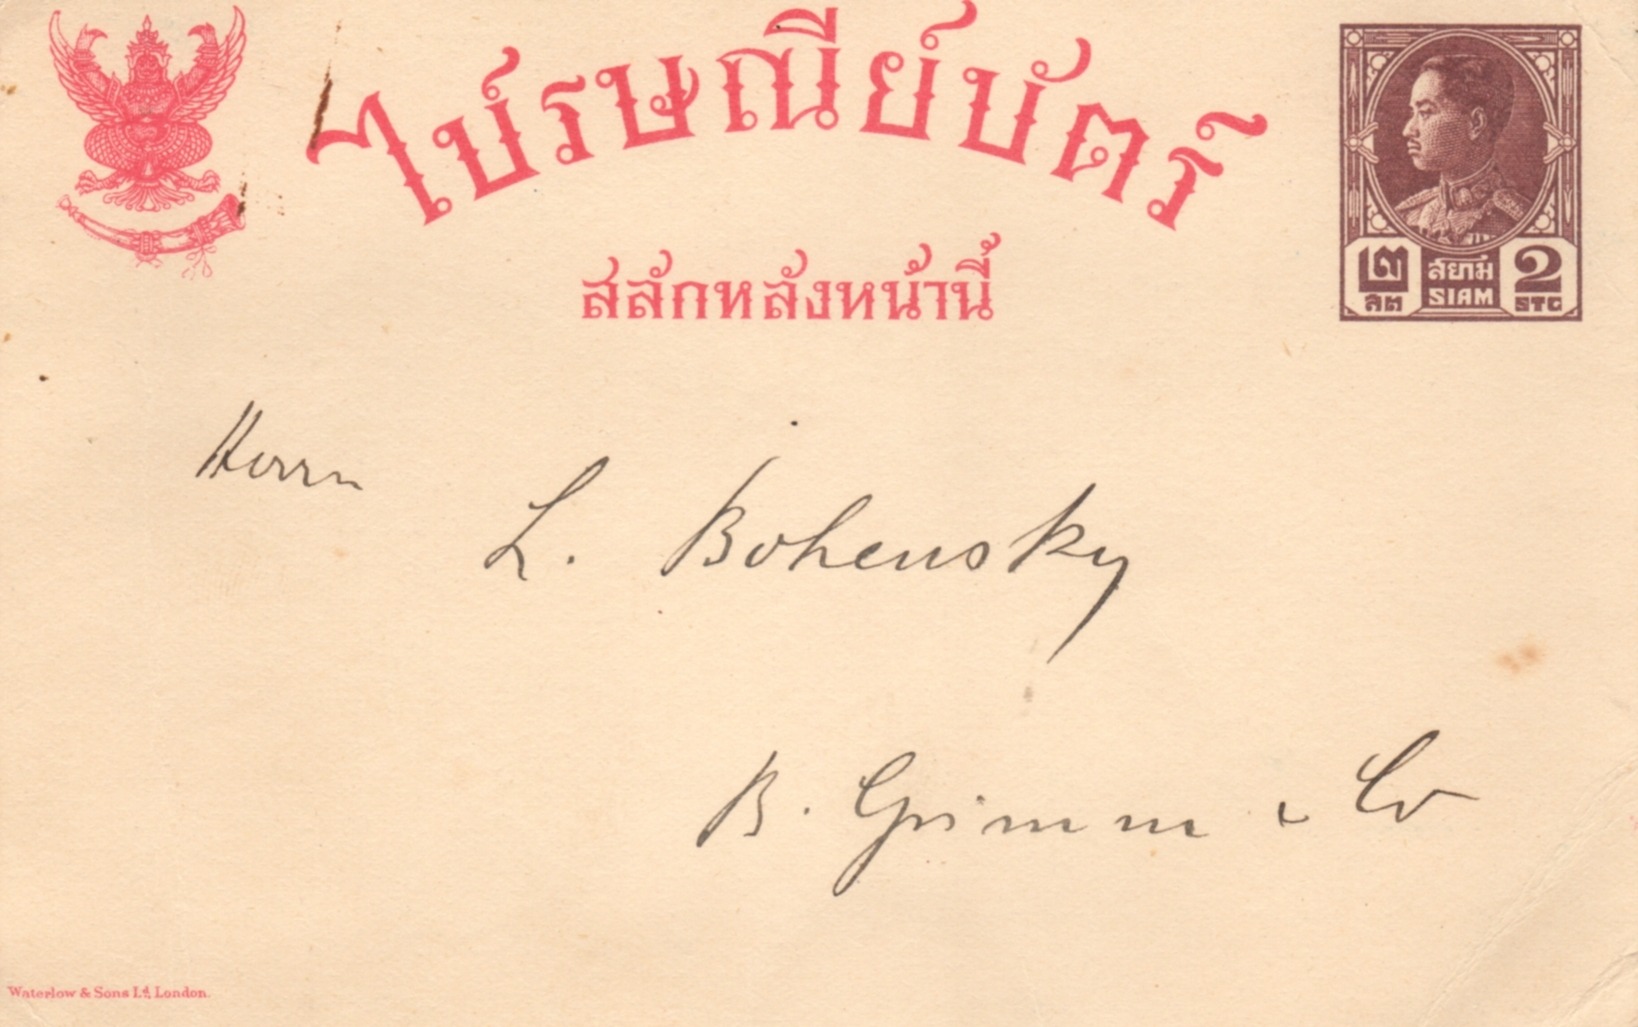 ไปรษณีย์บัตร์
สลักหลังหน้านี้
๒ สต สยาม SIAM 2 STG
Herrn
L. Bohensky
B. Grimm & Co
Waterlow & Sons Ld. London.